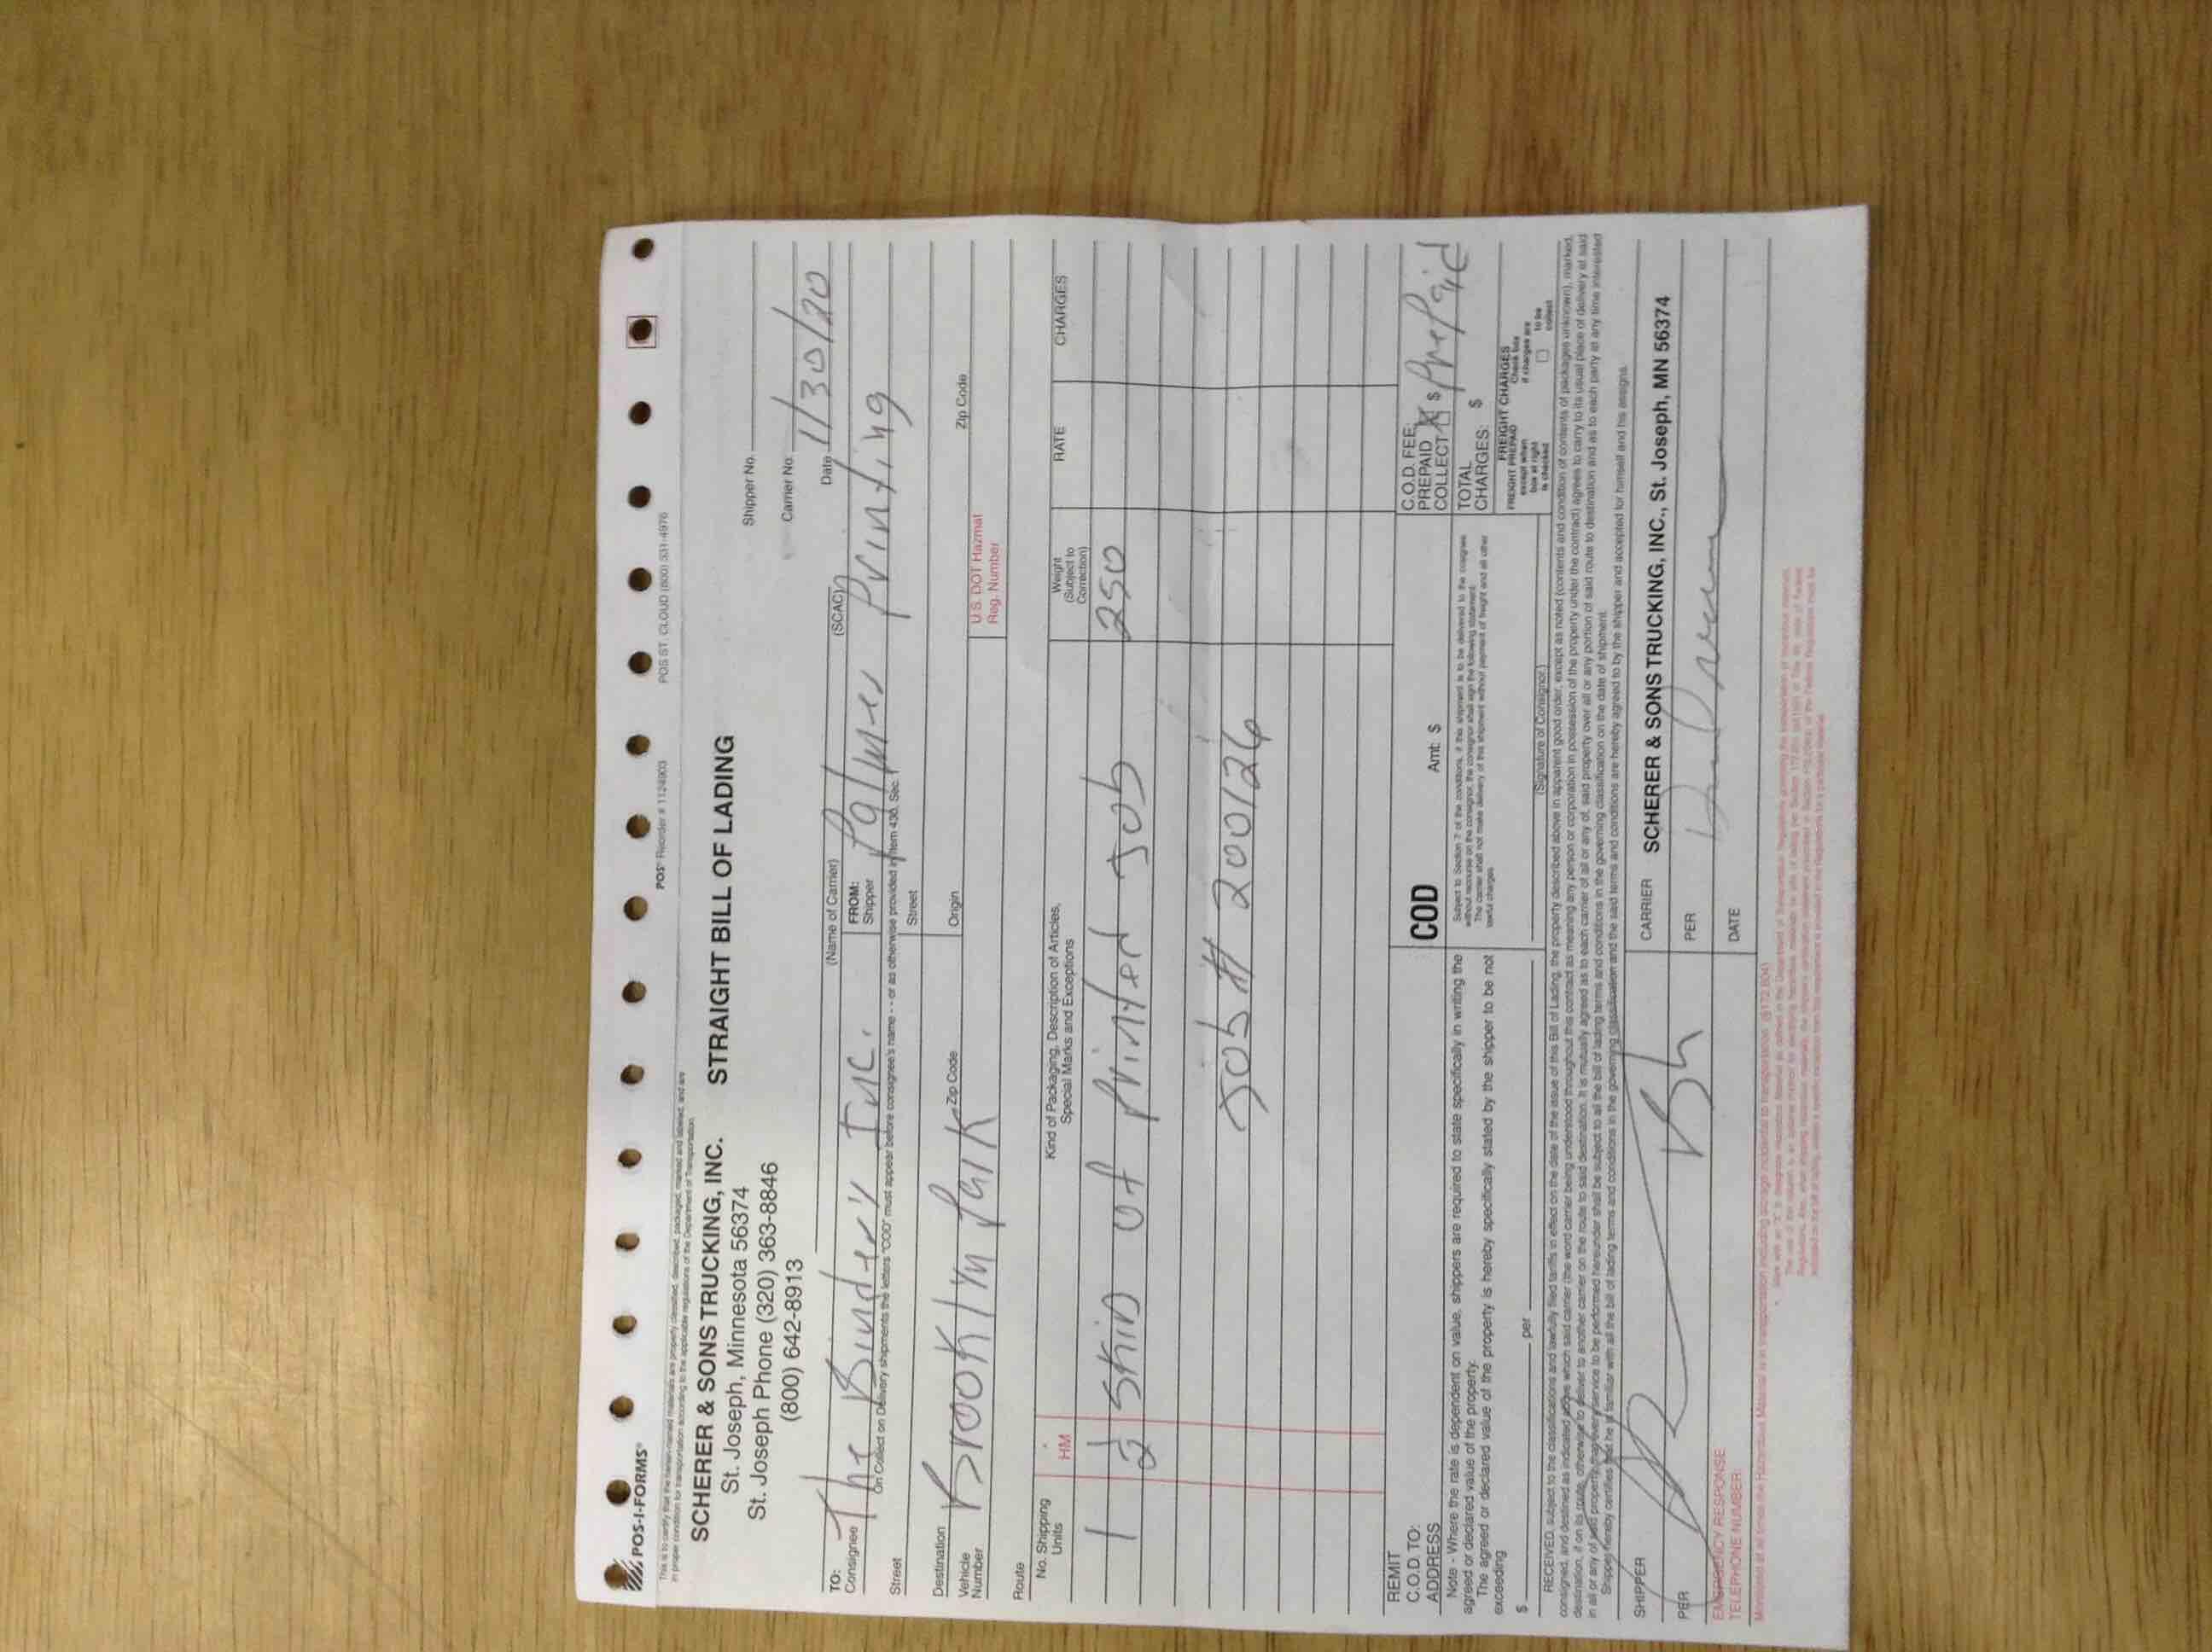 POS-I-FORMS®
POS® Reorder # 1124903
POS ST. CLOUD (800) 331-4976
This is to certify that the herein-named materials are properly classified, described, packaged, marked and labeled, and are
in proper condition for transportation according to the applicable regulations of the Department of Transportation.
SCHERER & SONS TRUCKING, INC.
STRAIGHT BILL OF LADING
St. Joseph, Minnesota 56374
St. Joseph Phone (320) 363-8846
(800) 642-8913
Shipper No.
Carrier No.
Date 11/30/20
(Name of Carrier) (SCAC)
TO:
Consignee The Bindery Inc.
FROM:
Shipper Palmer Printing
On Collect on Delivery shipments the letters "COD" must appear before consignee's name - - or as otherwise provided in Item 430, Sec. 1
Street
Street
Destination Brooklyn Park Zip Code
Origin Zip Code
Vehicle
Number
U.S. DOT Hazmat
Reg. Number
Route
No. Shipping
Units
HM
Kind of Packaging, Description of Articles,
Special Marks and Exceptions
Weight
(Subject to
Correction)
RATE
CHARGES
1 skid of Printed Job 250
Job # 200126
REMIT
C.O.D. TO:
ADDRESS
COD Amt: $
C.O.D. FEE:
PREPAID
COLLECT $ PrePaid
Note - Where the rate is dependent on value, shippers are required to state specifically in writing the
agreed or declared value of the property.
The agreed or declared value of the property is hereby specifically stated by the shipper to be not
exceeding
$ per
Subject to Section 7 of the conditions, if this shipment is to be delivered to the consignee
without recourse on the consignor, the consignor shall sign the following statement:
The carrier shall not make delivery of this shipment without payment of freight and all other
lawful charges.
(Signature of Consignor)
TOTAL
CHARGES: $
FREIGHT CHARGES
FREIGHT PREPAID
except when
box at right
is checked
Check box
if charges are
to be
collect
RECEIVED, subject to the classifications and lawfully filed tariffs in effect on the date of the issue of this Bill of Lading, the property described above in apparent good order, except as noted (contents and condition of contents of packages unknown), marked,
consigned, and destined as indicated above which said carrier (the word carrier being understood throughout this contract as meaning any person or corporation in possession of the property under the contract) agrees to carry to its usual place of delivery at said
destination, if on its route, otherwise to deliver to another carrier on the route to said destination. It is mutually agreed as to each carrier of all or any of, said property over all or any portion of said route to destination and as to each party at any time interested
in all or any of said property, that every service to be performed hereunder shall be subject to all the bill of lading terms and conditions in the governing classification on the date of shipment.
Shipper hereby certifies that he is familiar with all the bill of lading terms and conditions in the governing classification and the said terms and conditions are hereby agreed to by the shipper and accepted for himself and his assigns.
SHIPPER
CARRIER SCHERER & SONS TRUCKING, INC., St. Joseph, MN 56374
PER
PER
DATE
EMERGENCY RESPONSE
TELEPHONE NUMBER: